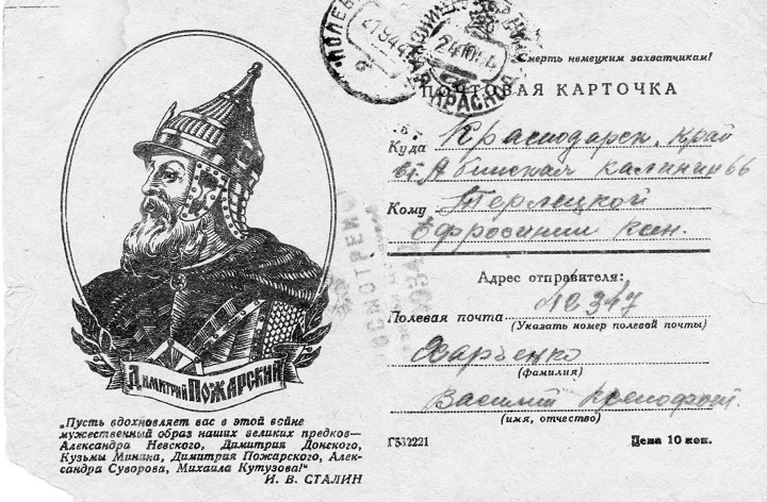 Смерть немецким захватчикам!
ПОЧТОВАЯ КАРТОЧКА
Куда Краснодарск. край
ст. Абинская калинин 66
Кому Терлецкой
Ефросинии
Адрес отправителя:
Полевая почта
(Указать номер полевой почты)
Харченко
(фамилия)
Василий Ксенофонт.
(имя, отчество)
Г532221 Цена 10 коп.
ДИМИТРИЙ ПОЖАРСКИЙ
„Пусть вдохновляет вас в этой войне
мужественный образ наших великих предков—
Александра Невского, Димитрия Донского,
Кузьмы Минина, Димитрия Пожарского, Алек-
сандра Суворова, Михаила Кутузова!"
И. В. СТАЛИН